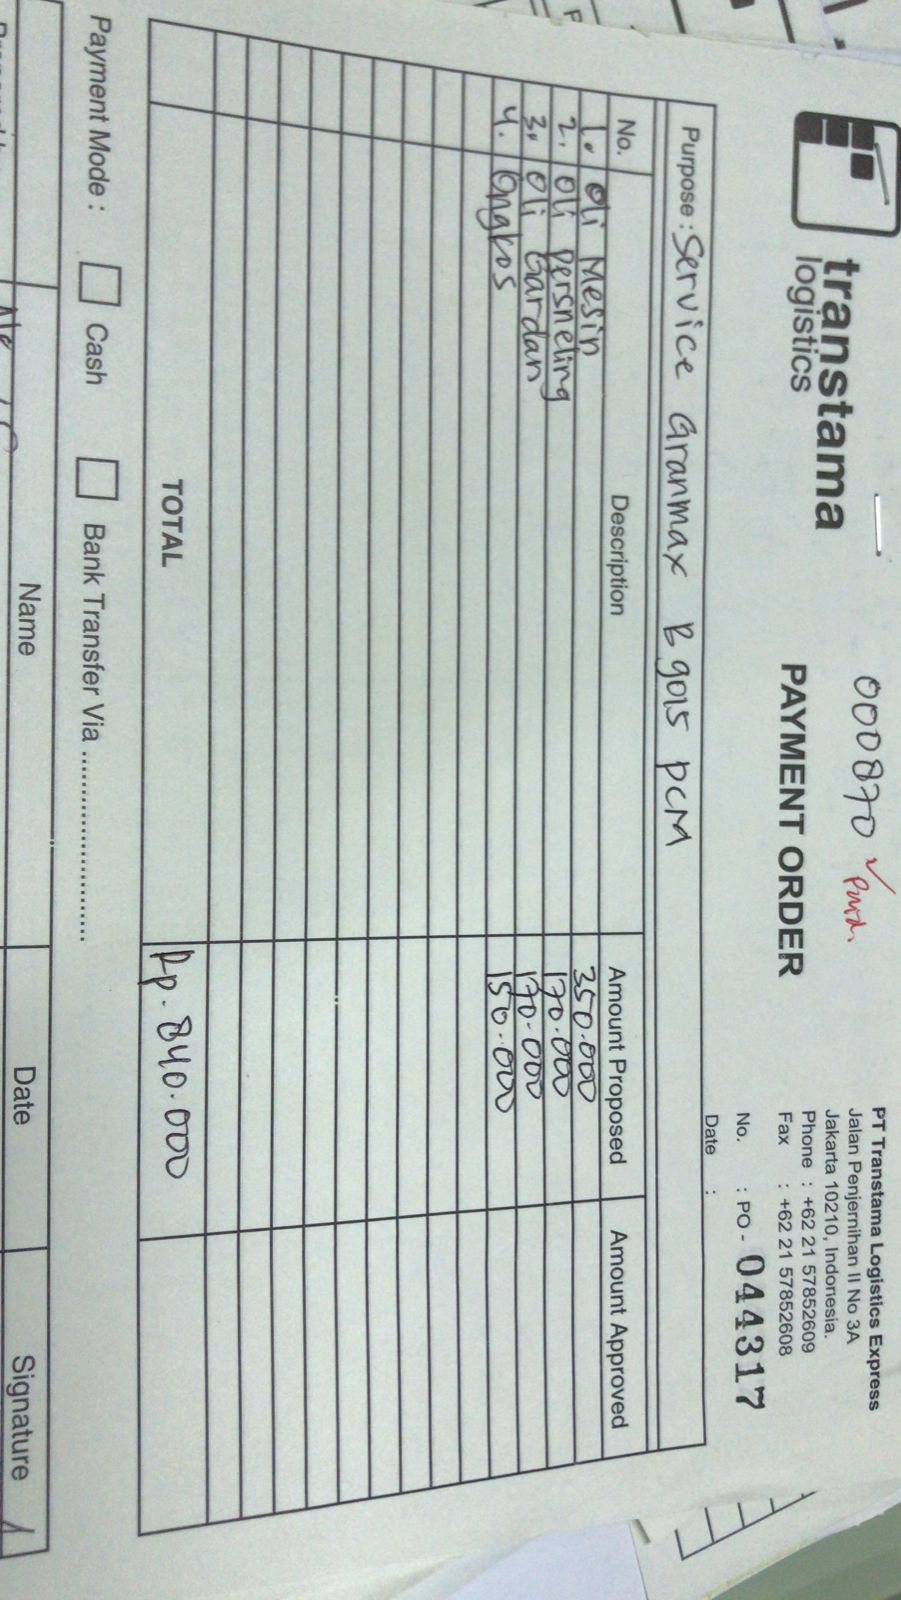 transtama
logistics
000870
PAYMENT ORDER
PT Transtama Logistics Express
Jalan Penjernihan II No 3A
Jakarta 10210, Indonesia.
Phone : +62 21 57852609
Fax : +62 21 57852608
No. : PO - 044317
Date :
Purpose : Service Granmax B 9015 PCM
No. Description Amount Proposed Amount Approved
1. Oli Mesin 350.000
2. Oli Persneling 170.000
3. Oli Gardan 170.000
4. Ongkos 150.000
TOTAL Rp. 840.000
Payment Mode : Cash Bank Transfer Via ........................
Name Date Signature